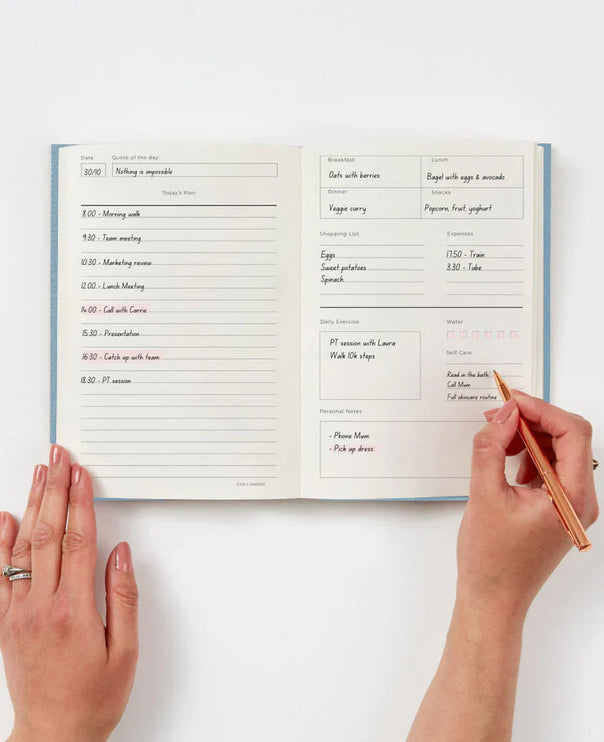 Date
Quote of the day:
30/10
Nothing is impossible
Today's Plan:
8:00 - Morning walk
9:30 - Team meeting
10:30 - Marketing review
12:00 - Lunch Meeting
14:00 - Call with Carrie
15:30 - Presentation
16:30 - Catch up with team
18:30 - PT session
Breakfast
Lunch
Oats with berries
Bagel with eggs & avocado
Dinner
Snacks
Veggie curry
Popcorn, fruit, yoghurt
Shopping List
Expenses
Eggs
17.50 - Train
Sweet potatoes
3.30 - Tube
Spinach
Daily Exercise
Water
PT session with Laura
Walk 10k steps
Self Care
Read in the bath
Call Mum
Full skincare routine
Personal Notes
- Phone Mum
- Pick up dress